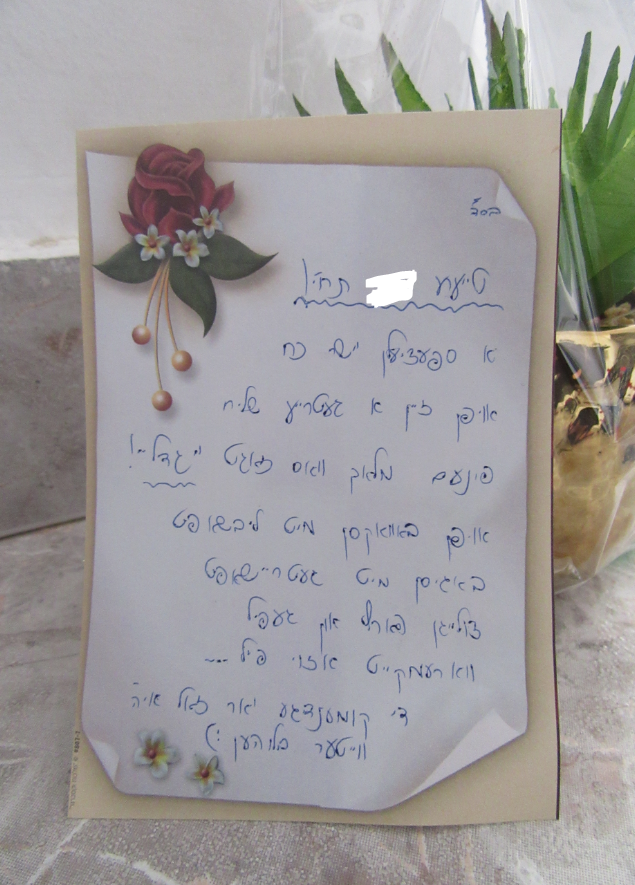 בס״ד
טייערע תחי׳!
א ספעציעלן יישר כח
אויפן זיין א געטרייע שליח
פינעם מלאך וואס זאגט "גדל"!
אויפן באוואקסן מיט ליבשאפט
באגיסן מיט געטריישאפט
צולייגן פארב און געפיל
ווארעמקייט אזוי פיל ---
די קומענדגע יאר זאל אי״ה
ווייטער בליהען :)